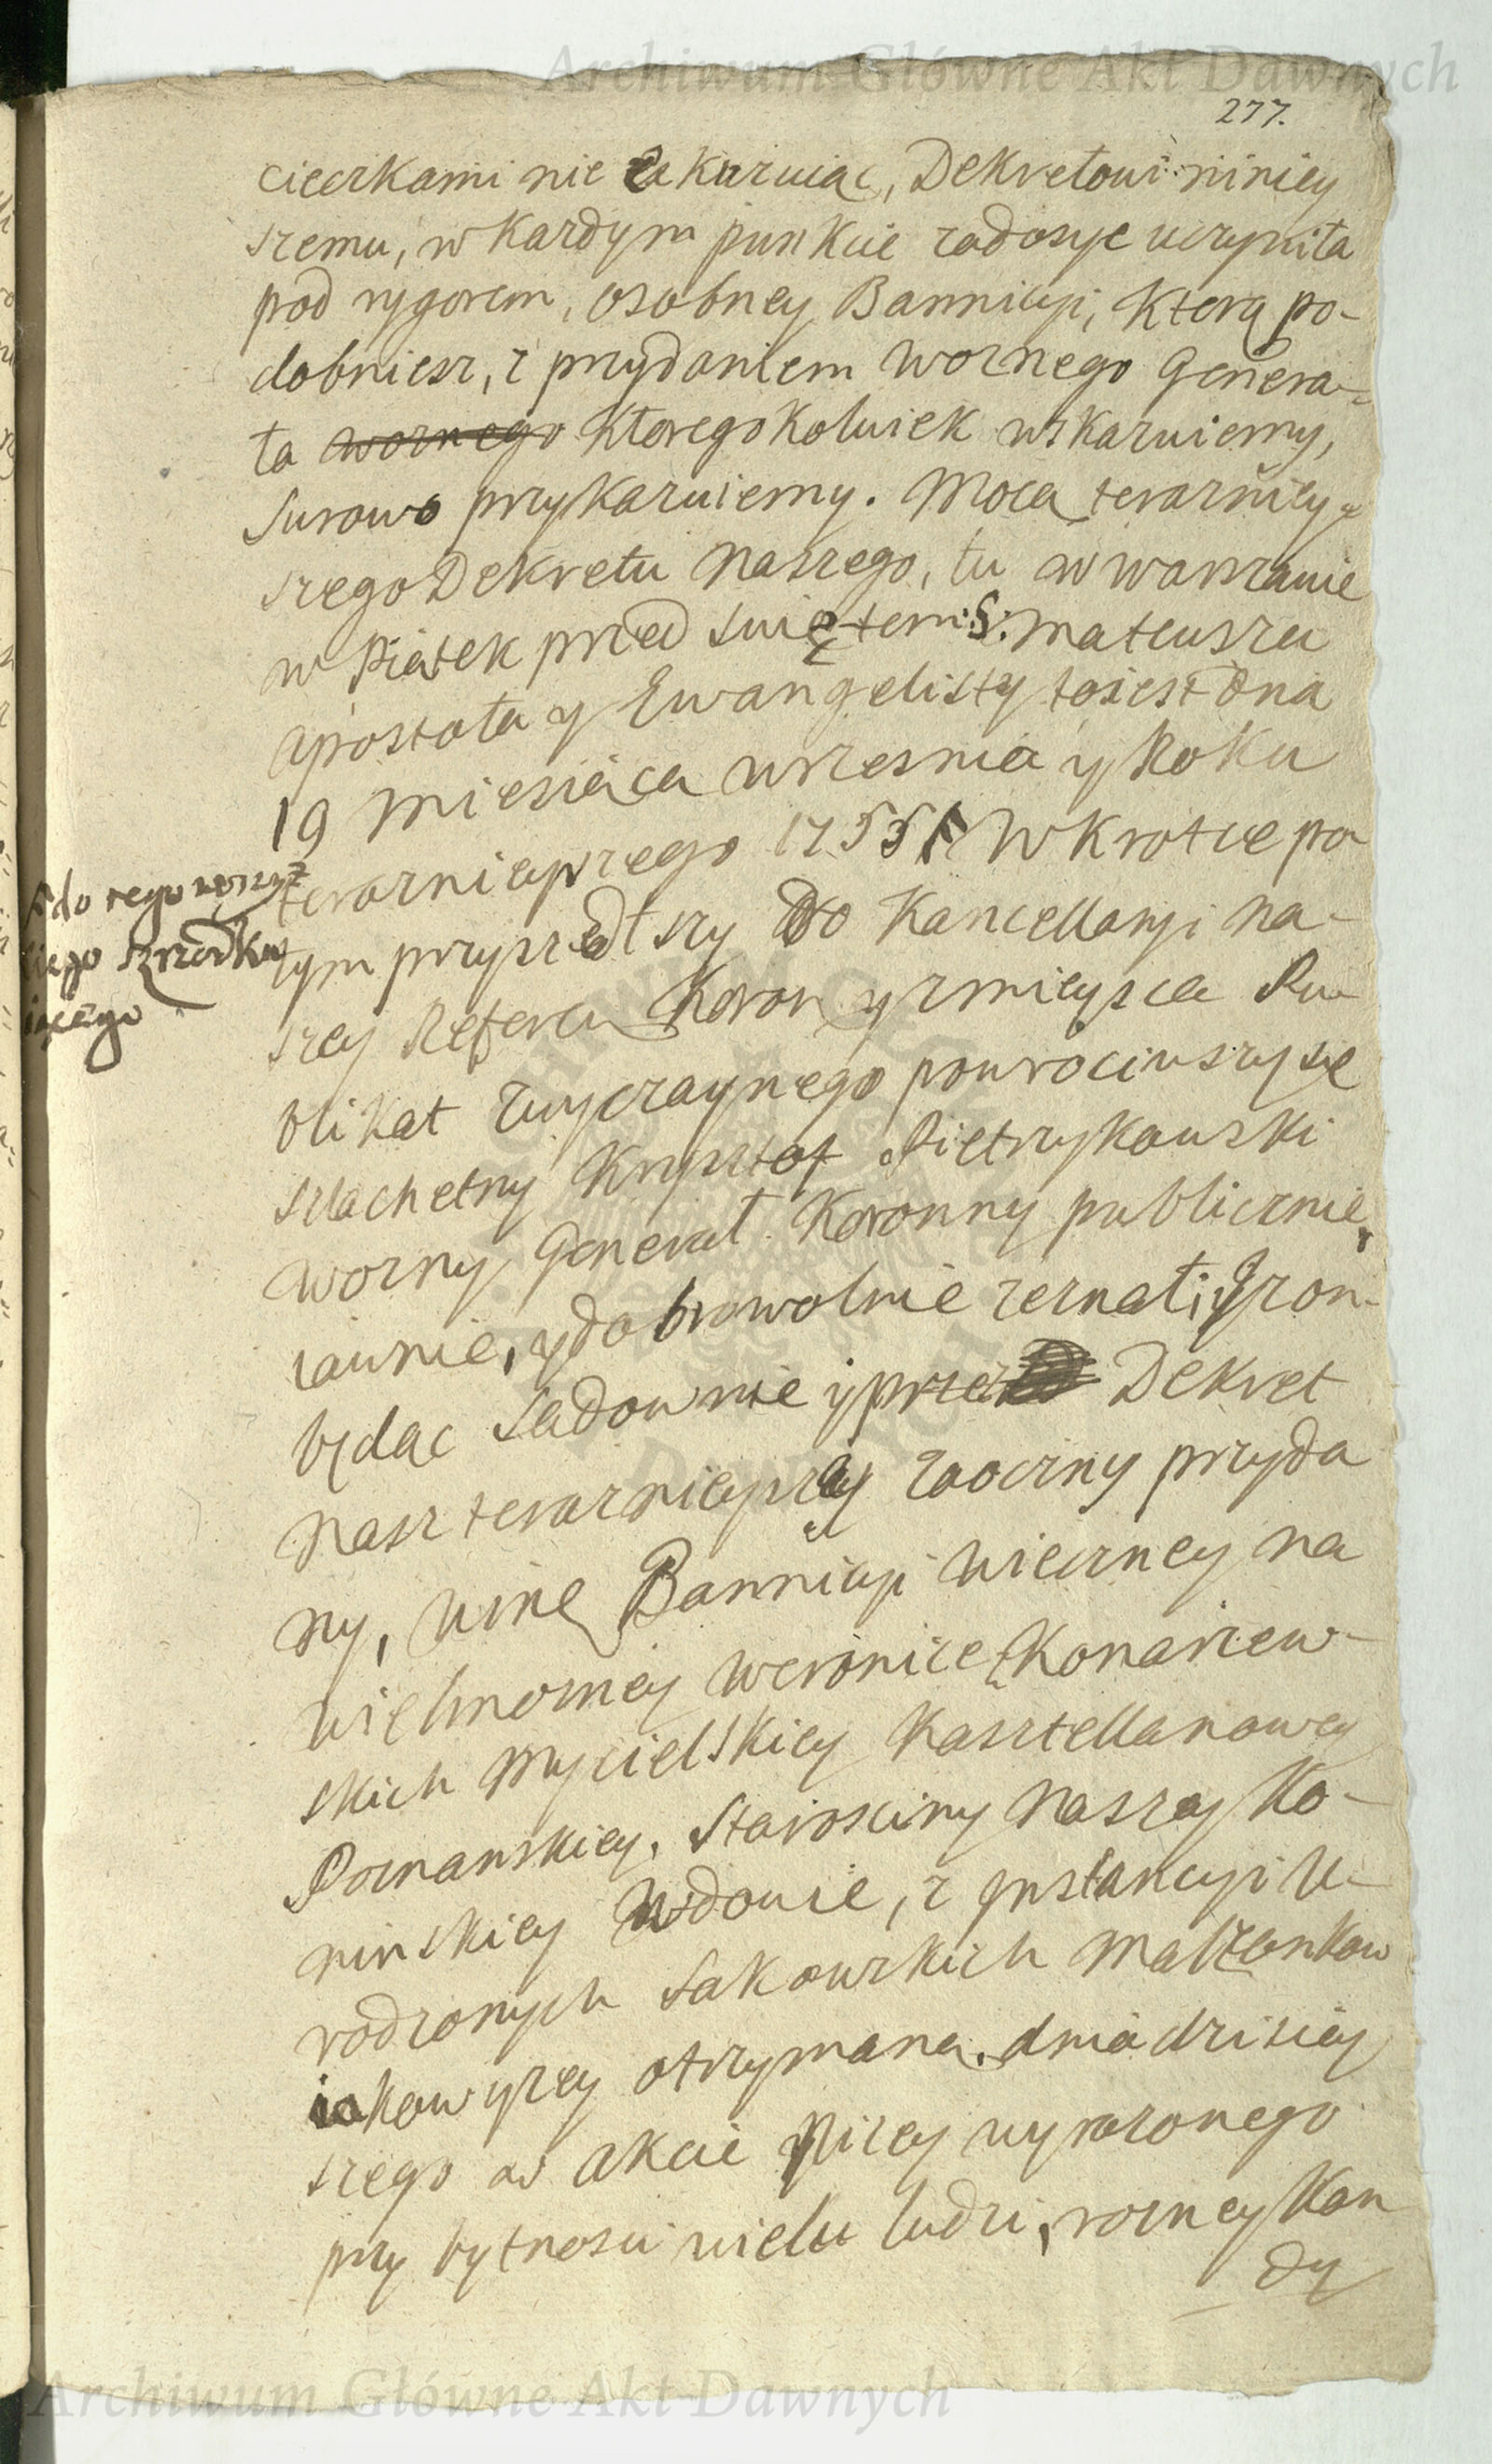 Archiwum Główne Akt Dawnych
277.
cieczkami nie zakurwiąc, Dekretowi niniey
szemu, w kazdym punkcie zadosyc uczyniła
pod rygorem, osobney Bannicyi, Ktorą po-
dobniesz, z przydaniem woznego Genera-
ła woznego Ktoregokolwiek wskazuiemy,
Surowo przykazuiemy. Mocą terazniey-
szego Dekretu Naszego, tu w Warszawie
w Piątek przed Swiętem S: Mateusza
Apostoła y Ewangelisty toiest Dnia
19 Miesiąca Wrzesnia y Roku
terazniejszego 1755 W Krotce po
tym przyszedłszy do Kancellaryi Na-
szey Referen Koron y z mieysca Pu-
blikat zwyczaynego powrociwszy się
Szlachetny Krysztof Pietrzykowski
Wozny Generał Koronny publicznie,
iawnie, y dobrowolnie zeznał, iż on
będąc Sadownie y przez Dekret
Nasz terazniejszy zaoczny przyda
ny, winę Bannicyi wieczney na
wielmozney Weronice z Konarzew-
skich Mycielskiey Kasztellanowey
Poznanskiey, Starosciny Naszey Ko-
ninskiey Wdowie, z Jnstancyi U-
rodzonych Sakowskich Małzonkow
iakowyzey otrzymaną. dnia dzisiey
szego w akcie Nizey wyrazonego
przy bytnosci wielu ludzi, rozney Kon
dy
do tego